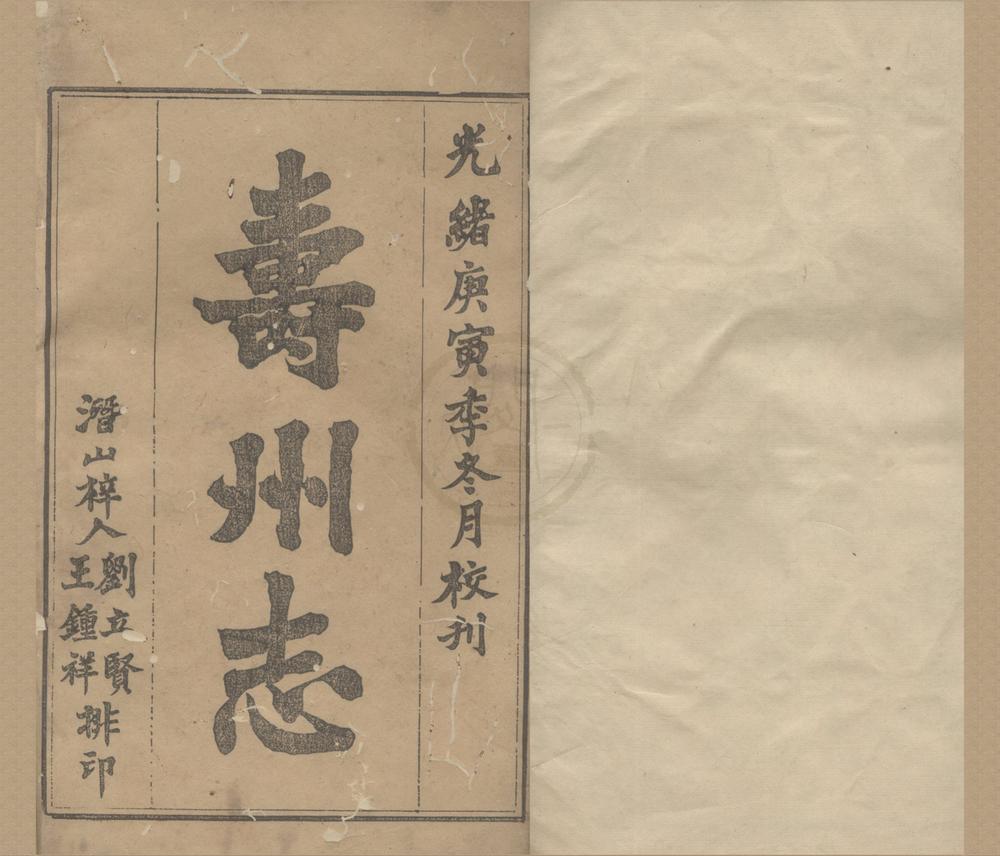 光緒庚寅季冬月校刊
壽州志
潛山梓人劉立賢王鍾祥排印